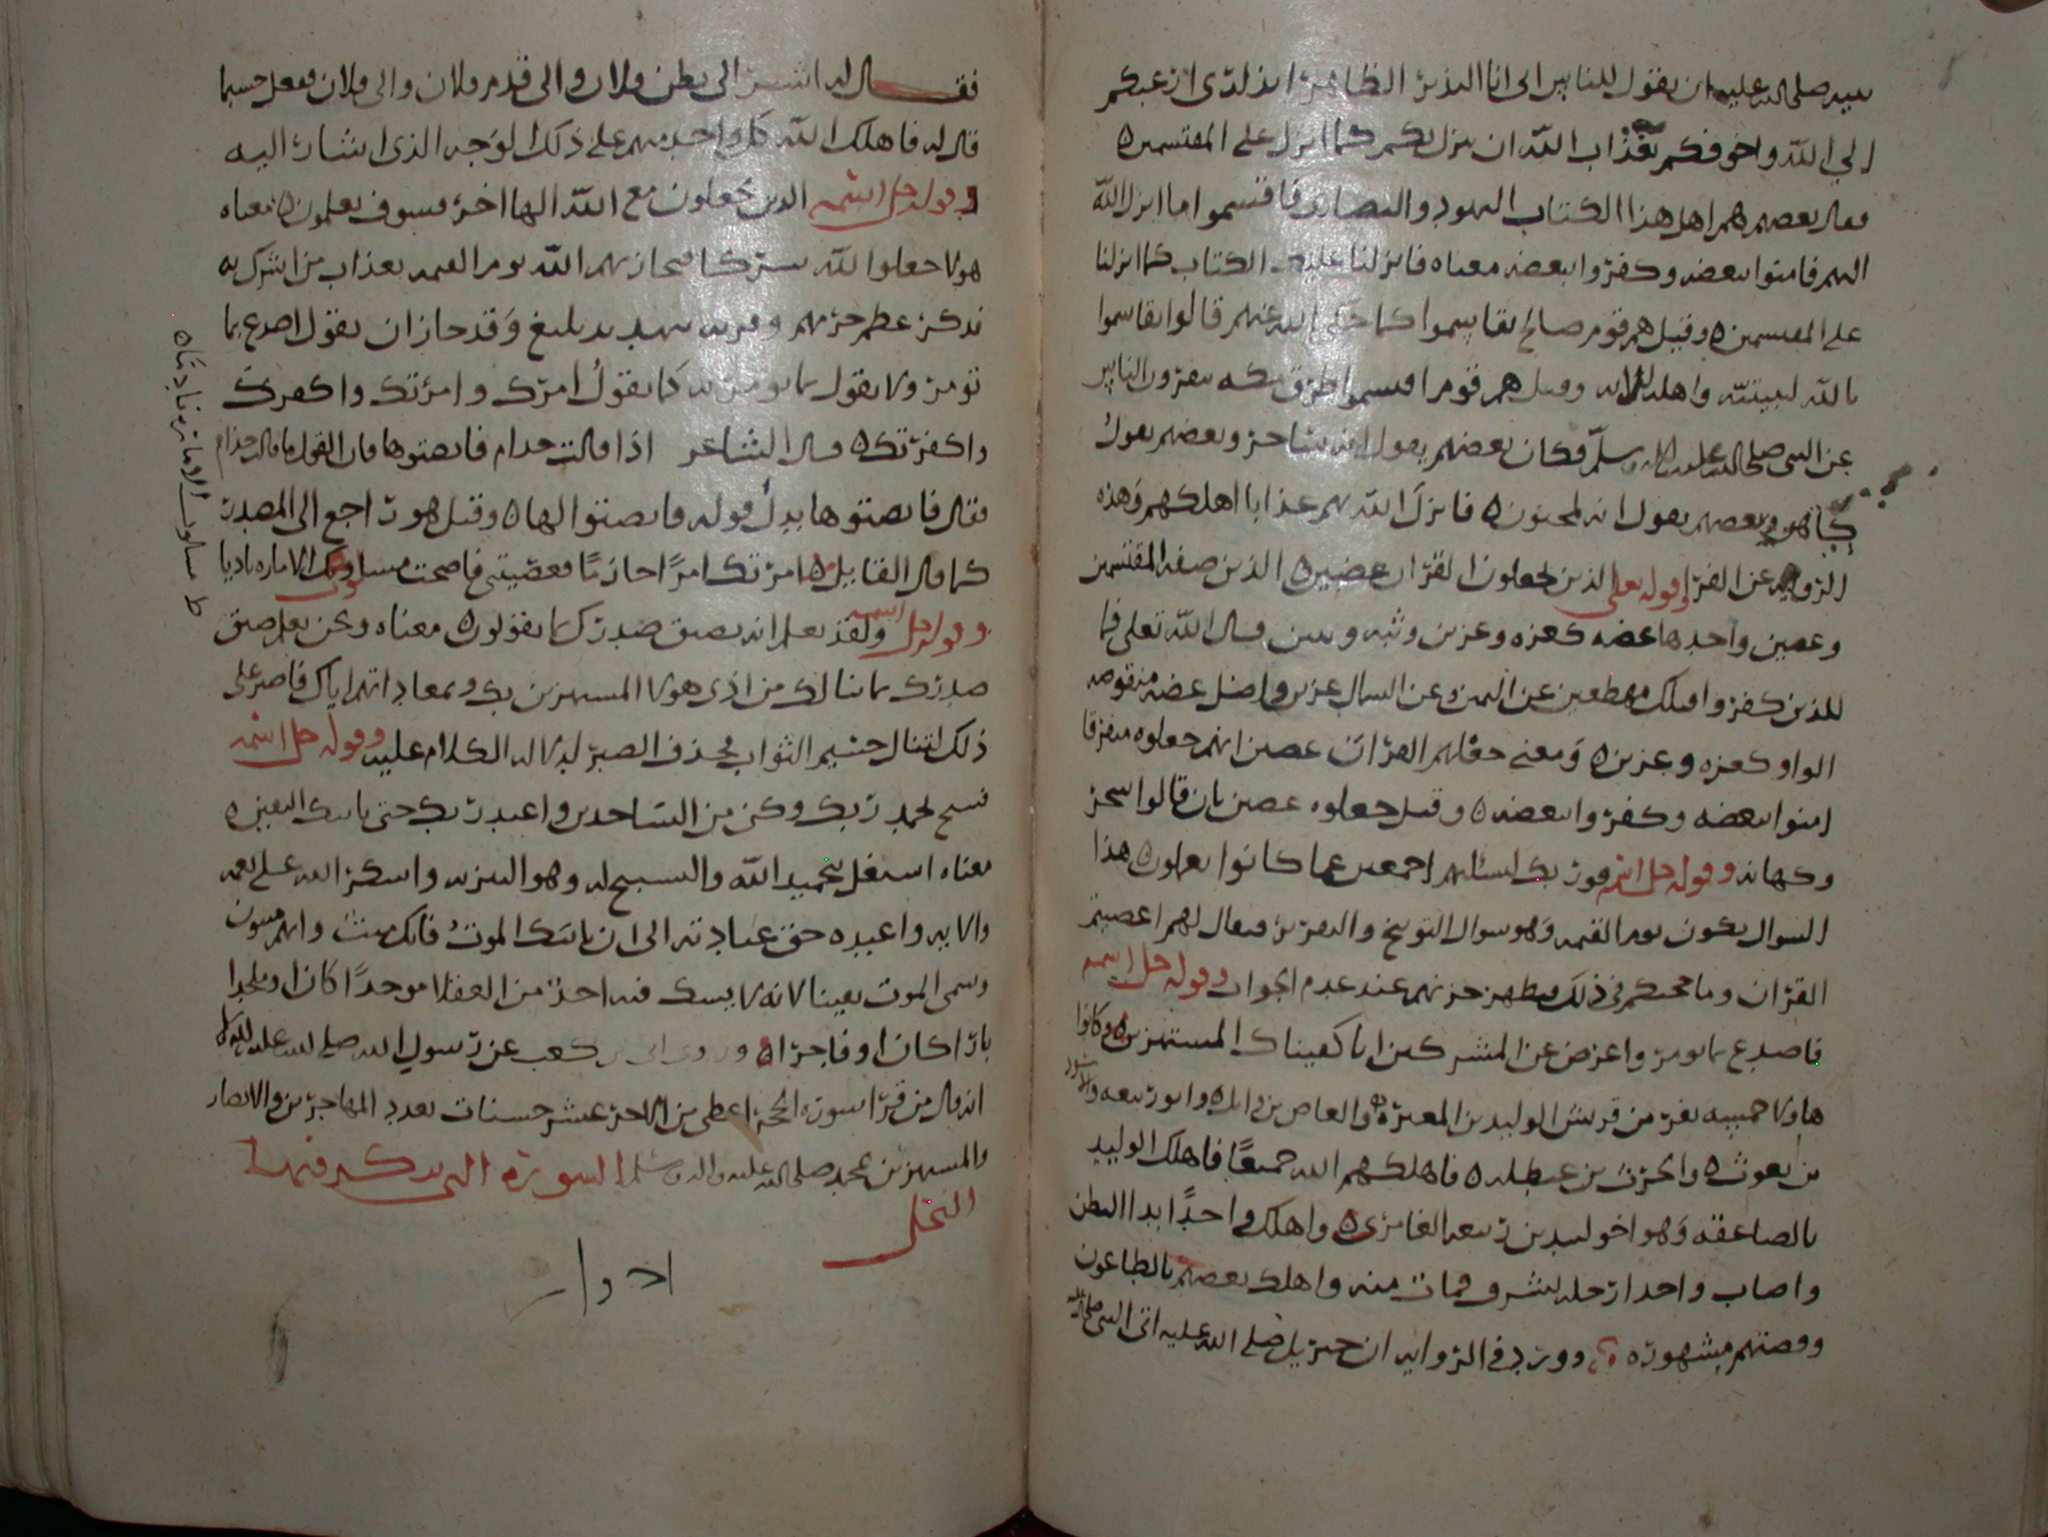 نبيه صلى الله عليه ان يقول للناس الى انا النذير الظاهر انذاري ادعيكم
الي الله واخوفكم بعذاب الله ان ينزل بكم كما انزل على المقتسمين
فقال بعضهم هم اهل هذا الكتاب اليهود والنصارى فاقتسموا ما انزل الله
اليهم فامنوا ببعضه وكفروا ببعضه معناه فانزلنا عليك الكتاب كما انزلنا
على المقتسمين وقيل هم قوم صالح تقاسموا كما حكى الله عنهم قالوا تقاسموا
بالله لنبيتنه واهله الايه وقيل هم قوم اقتسموا طرق مكه ينفرون الناس
عن النبي صلى الله عليه واله وسلم فكان بعضهم يقول انه ساحر وبعضهم يقول
كاهن وبعضهم يقول انه لمجنون فانزل الله بهم عذابا اهلكهم وهذه
الروايه عن الفرا وقوله تعلى الذين جعلوا القران عضين الذين صفه المقتسمين
وعضين واحدها عضه كعزه وعزين وثبه وثبين قال الله تعلى فما
للذين كفروا قبلك مهطعين عن اليمين وعن الشمال عزين واصل عضه منقوصه
الواو كعزه وعزين ومعنى جعلهم القران عضين انهم جعلوه متفرقا
امنوا ببعضه وكفروا ببعضه وقيل جعلوه عضين بان قالوا سحر
وكهانه وقوله جل اسمه فوربك لنسئلنهم اجمعين عما كانوا يعملون هذا
السوال يكون يوم القيمه وهو سوال التوبيخ والتقرير فيقال لهم اعضيتم
القران وما حجتكم في ذلك فيظهر خزيهم عند عدم الجواب وقوله جل اسمه
فاصدع بما تومر واعرض عن المشركين انا كفيناك المستهزين وكانوا
هاولا خمسه نفر من قريش الوليد بن المغيره والعاص بن وايل وابو زمعه والاسود
بن يغوث والحرث بن عيطله فاهلكهم الله جميعا فاهلك الوليد
بالصاعقه وهو اخو لبيد بن ربيعه العامري واهلك واحدا بداا البطن
واصاب واحدا رجله فمات منه واهلك بعضهم بالطاعون
وقصتهم مشهوره وورد في الروايه ان جبريل صلى الله عليه اتى النبي صلى الله عليه
فقال له اشر الى بطن فلان والى قدم فلان والى فلان ففعل حسبما
قال له فاهلك الله كل واحد منهم على ذلك الوجه الذي اشار اليه
وقوله جل اسمه الذين يجعلون مع الله الها اخر فسوف يعلمون معناه
هولا جعلوا لله شركا فيجازيهم الله يوم القيمه بعذاب من اشرك به
فذكر عظم جرمهم وقرنه بتهديد بليغ وقد جاز ان يقول اصدع بما
تومر ولا يقول بما تومر به كما يقول امرك وامرتك واكفرك
واكفرتك قال الشاعر اذا قالت حذام فانصتوها فان القول ما قالت حذام
فقال فانصتوها بدل قوله فانصتوا لها وقيل هو راجع الى المصدر
كما قال القايل امرتك امرا حازما فعصيتني فاصبحت مسلوب الاماره ناديا
وقوله جل اسمه ولقد نعلم انه يضيق صدرك بما يقولون معناه ونحن نعلم ضيق
صدرك بما ينالك من اذى هولا المستهزين بك ومعاداتهم اياك فاصبر على
ذلك لتنال جسيم الثواب فحذف الصبر لدلاله الكلام عليه وقوله جل اسمه
فسبح بحمد ربك وكن من الساجدين واعبد ربك حتى ياتيك اليقين
معناه اشتغل بتحميد الله والتسبيح له وهو التنزيه واشكر الله على نعمه
والايه واعبده حق عبادته الى ان ياتيك الموت فانك ميت وانهم ميتون
وسمى الموت يقينا لانه لا يشك فيه احد من العقلا موحدا كان او ملحدا
بارا كان او فاجرا وروى ابي بن كعب عن رسول الله صلى الله عليه واله
انه قال من قرا سوره الحجر اعطى من الاجر عشر حسنات بعدد المهاجرين والانصار
والمستهزين بمحمد صلى الله عليه واله وسلم السوره التي يذكر فيها
النحل